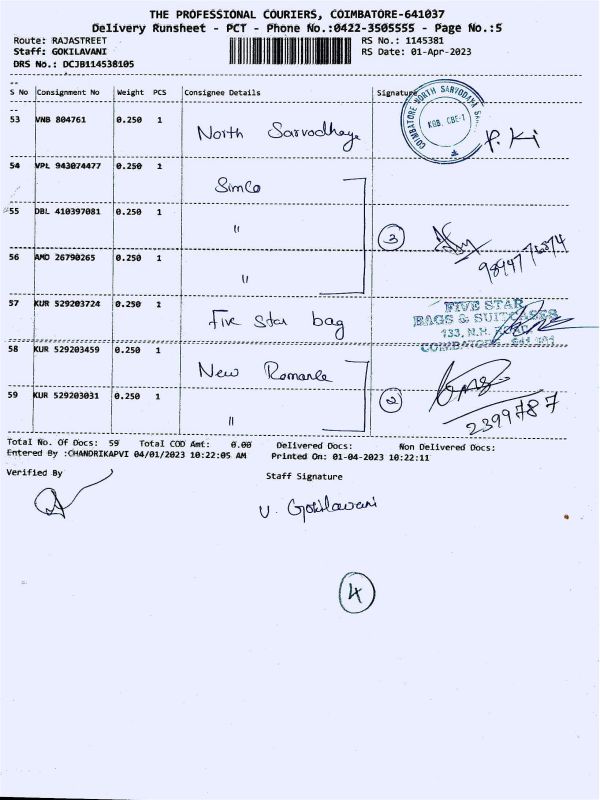 THE PROFESSIONAL COURIERS, COIMBATORE-641037
Delivery Runsheet - PCT - Phone No.:0422-3505555 - Page No.:5
Route: RAJASTREET
Staff: GOKILAVANI
DRS No.: DCJB114538105
RS No.: 1145381
RS Date: 01-Apr-2023
S No Consignment No Weight PCS Consignee Details Signature
53 VNB 804761 0.250 1 North Sarvodhaya
COIMBATORE NORTH SARVODAYA
CBE-1
54 VPL 943074477 0.250 1 Simco
55 DBL 410397081 0.250 1 "
3
56 AMD 26790265 0.250 1 "
57 KUR 529203724 0.250 1 Five Star bag
FIVE STAR
BAGS & SUITCASES
133, N.H. ROAD
COIMBATORE - 641 001
58 KUR 529203459 0.250 1 New Romance
59 KUR 529203031 0.250 1 "
2
2399787
Total No. Of Docs: 59 Total COD Amt: 0.00 Delivered Docs: Non Delivered Docs:
Entered By :CHANDRIKAPVI 04/01/2023 10:22:05 AM Printed On: 01-04-2023 10:22:11
Verified By
Staff Signature
V. Gokilavani
4